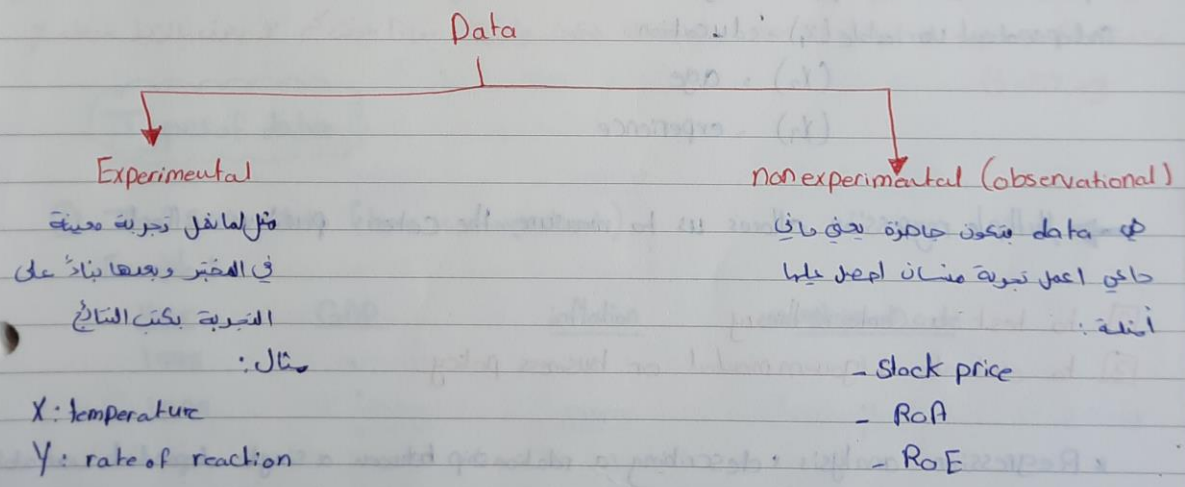 Data
Experimental
مثل لما نفل تجربة معينة
في المختبر وبعدها بناءً على
التجربة بكتب النتائج
مثال:
X: temperature
Y: rate of reaction
non experimental (observational)
هي data بتكون جاهزة يعني مافي
داعي اعمل تجربة منشان احصل عليها
أمثلة:
- Stock price
- RoA
- RoE